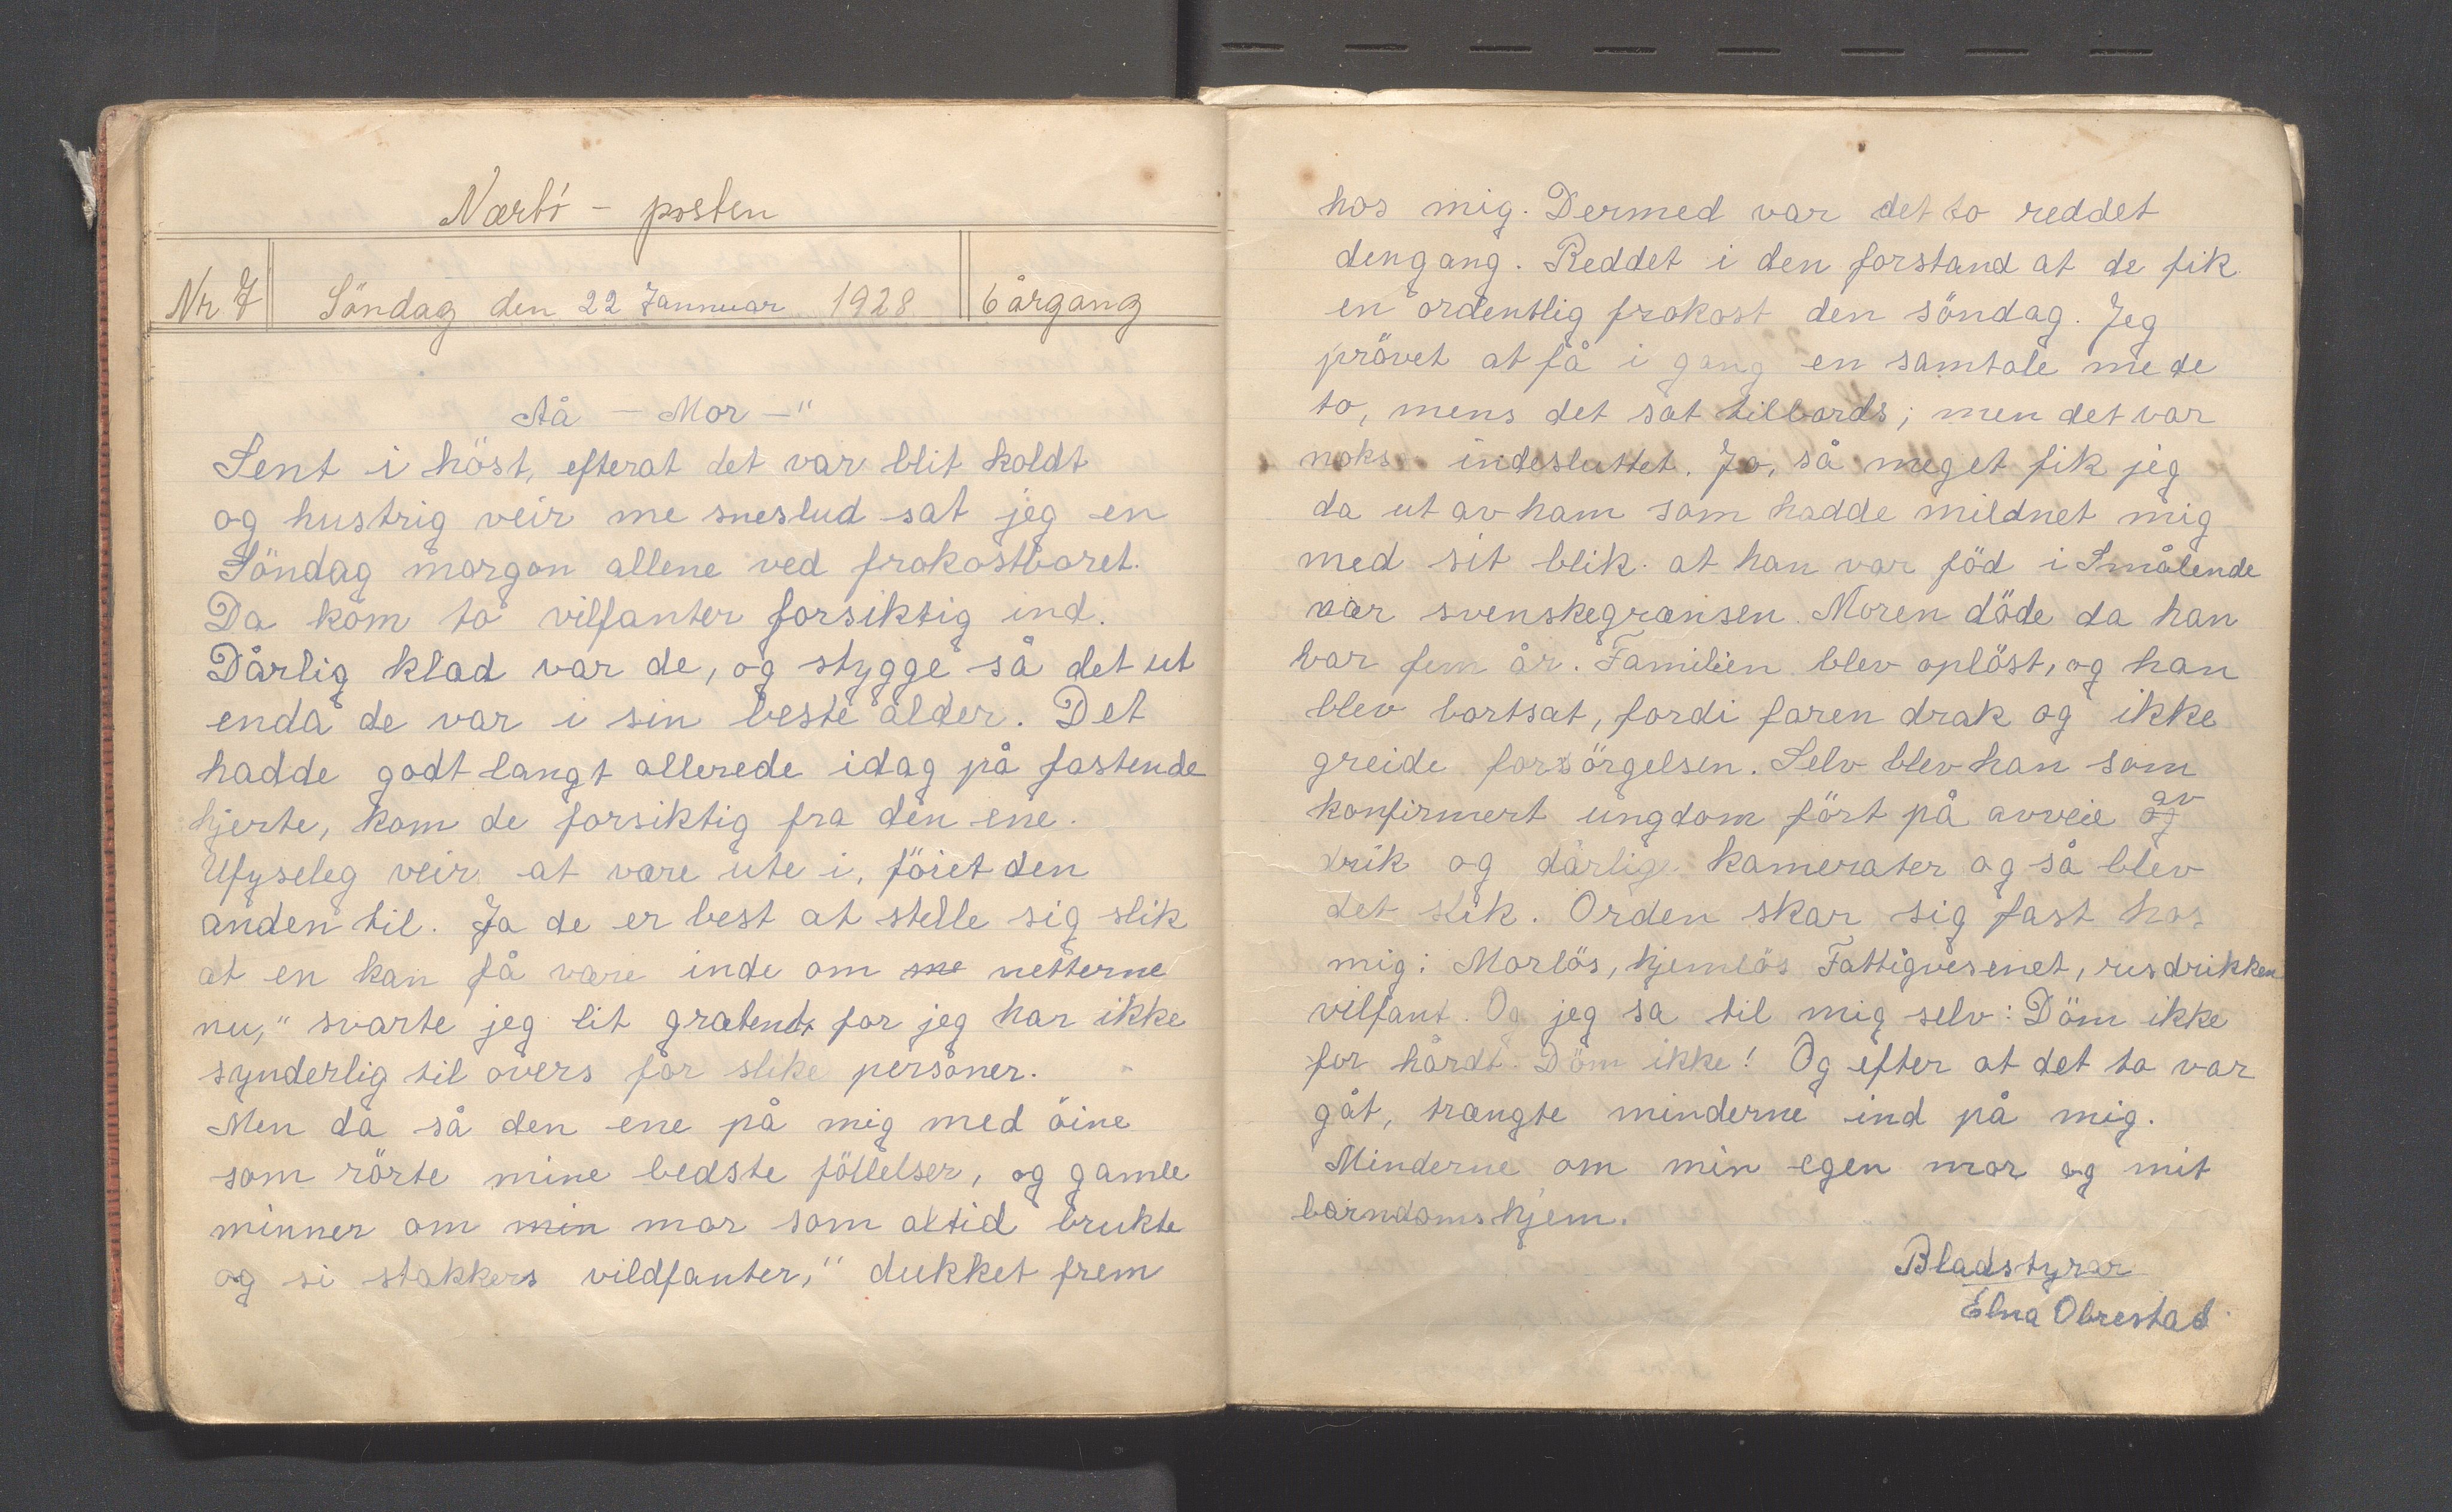 Nærbö - posten
Nr. 7 Söndag den 22 Jannuar 1928 6 årgang
Aå - Mor -"
Sent i höst, efterat det var blit koldt
og hustrig veir me sneslud sat jeg en
Söndag morgon allene ved frokostboret.
Da kom to vilfanter forsiktig ind.
Dårlig klæd var de, og stygge så det ut
enda de var i sin beste alder. Det
hadde godt langt allerede idag på fastende
hjerte, kom de forsiktig fra den ene.
Ufyseleg veir at være ute i, föiet den
anden til. Ja de er best at stelle sig slik
at en kan få være inde om me netterne
nu," svarte jeg lit grætent for jeg har ikke
synderlig til overs for slike personer.
Men da så den ene på mig med öine
som rörte mine bedste föllelser, og gamle
minner om min mor som altid brukte
og si stakkers vildfanter," dukket frem
hos mig. Dermed var det to reddet
dengang. Reddet i den forstand at de fik
en ordentlig frokost den söndag. Jeg
prövet at få i gang en samtale me de
to, mens det sat tilbords; men det var
nokså indesluttet. Jo, så meget fik jeg
da ut av ham som hadde mildnet mig
med sit blik. at han var föd i Smålende
nær svenskegrænsen. Moren döde da han
var fem år. Familien blev oplöst, og han
blev bortsat, fordi faren drak og ikke
greide forsörgelsen. Selv blev han som
konfirmert ungdom fört på avveie af av
drik og dårlige kamerater og så blev
det slik. Orden skar sig fast hos
mig: Morlös, hjemlös Fattigvesenet, rusdrikken
vilfant. Og jeg sa til mig selv: Döm ikke
for hårdt. Döm ikke! Og efter at det to var
gåt, trængte minderne ind på mig.
Minderne om min egen mor og mit
barndomshjem.
Bladstyrar
Elna Obrestad